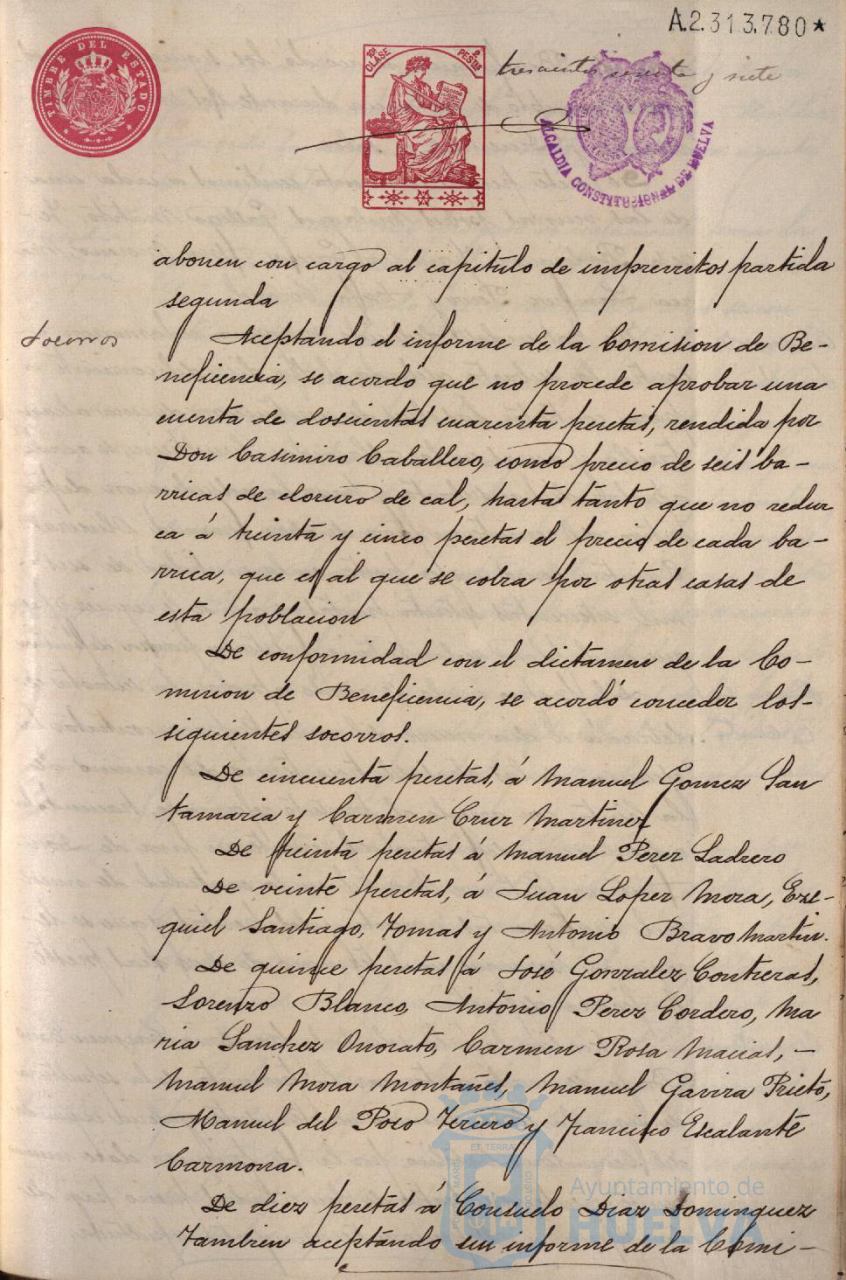 A.2.313.780★
TIMBRE DEL ESTADO
10ª CLASE 2 PESTAS
trescientos sesenta y siete
ALCALDIA CONSTITUCIONAL DE HUELVA
abonen con cargo al capitulo de imprevistos partida
segunda
Socorros
Aceptando el informe de la Comision de Be-
neficencia, se acordó que no procede aprobar una
cuenta de doscientas cuarenta pesetas, rendida por
Don Casimiro Caballero, como precio de seis ba-
rricas de cloruro de cal, hasta tanto que no reduz
ca á treinta y cinco pesetas el precio de cada ba-
rrica, que es al que se cobra por otras casas de
esta poblacion
De conformidad con el dictamen de la Co-
mision de Beneficencia, se acordó conceder los-
siguientes socorros.
De cincuenta pesetas, á Manuel Gomez San
tamaria y Carmen Cruz Martinez
De treinta pesetas á Manuel Perez Ladrero
De veinte pesetas, á Juan Lopez Mora, Eze-
quiel Santiago, Tomas y Antonio Bravo Martin.
De quince pesetas á José Gonzalez Contreras,
Lorenzo Blanco, Antonio Perez Cordero, Ma
ria Sanchez Onorato, Carmen Rosa Macias, -
Manuel Mora Montañes, Manuel Gavira Prieto,
Manuel del Pozo Tercero y Francisco Escalante
Carmona.
De diez pesetas á Consuelo Diaz Dominguez
Tambien aceptando un informe de la Comi-
Ayuntamiento de
HUELVA